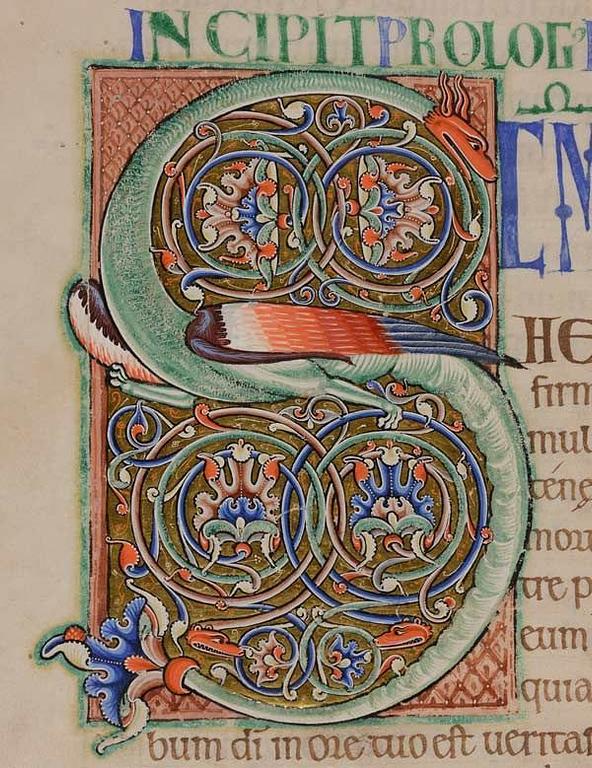 INCIPIT PROLOG' I
S EM
HE
firm
mul
tenę
mortu
tre p
eum
quia
bum di in ore tuo est ueritas